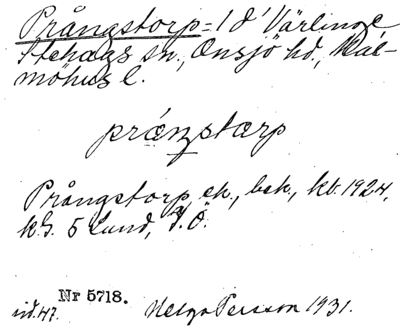 Prångstorp = 1 d' Värlinge
Stehags sn., Onsjö hd., Mal-
möhus l.
prángstårp
Prångstorp, ek., bek., kb. 1924,
k.b. 5 Lund, I.Ö.
Nr 5718.
sid. 47. Helga Persson 1931.